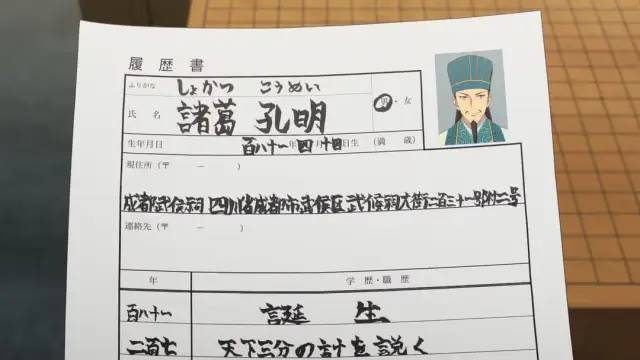 履歴書
ふりがな しょかつ こうめい
氏 名 諸葛 孔明 男・女
生年月日 百八十一 年 四 月 十 日生 (満 歳)
現住所(〒 － )
成都武侯祠 四川省成都市武侯区武侯祠大街二百三十一号附二号
連絡先(〒 － )
年 学歴・職歴
百八十一 誕生
二百七 天下三分の計を説く